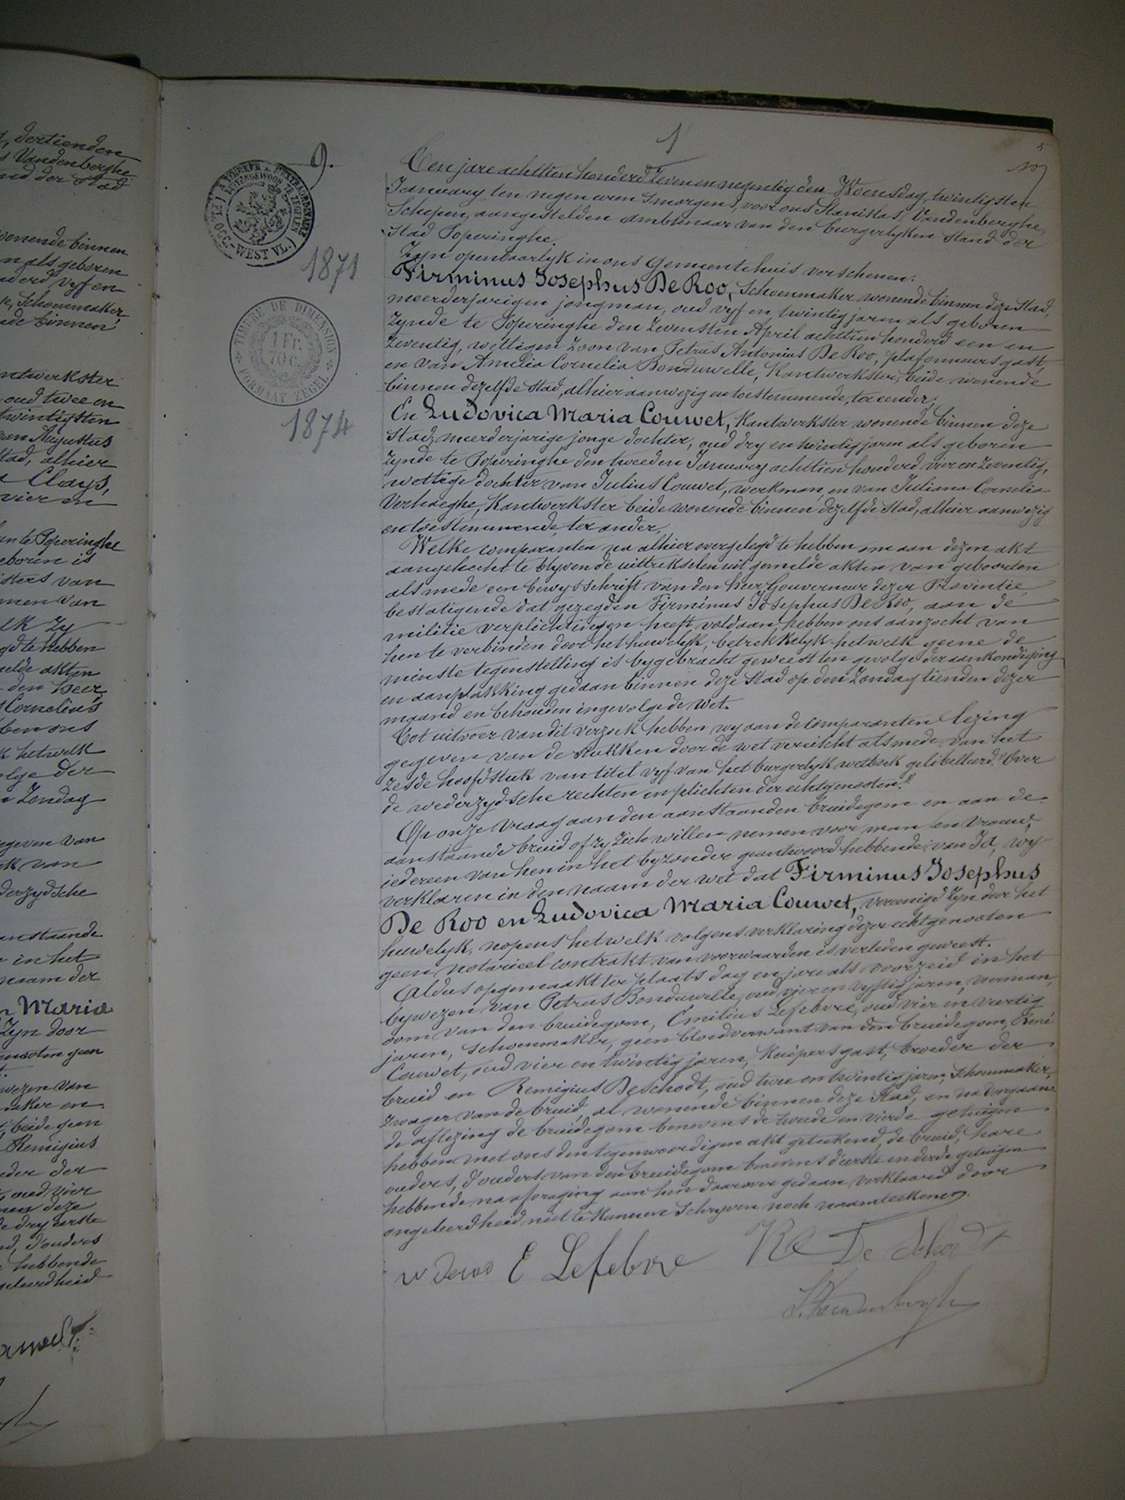 dertienden
Vandenberghe
der Stad
wonende binnen
als geboren
vyf en
Schoenmaker,
binnen
Kantwerkster
oud twee en
twintigsten
Augustus
Stad, alhier
Clays,
vier en
te Poperinghe
geboren is
van
van
Zy
te hebben
akten
den Heer
Cornelius
ons
hetwelk
der
Zondag
gegeven van
van
wederzydsche
aanstaande
in het
naam der
Maria
Zyn door
geen
van
en
beide geen
Remigius
der
oud vier
deze
de dry eerste
d'ouders
hebbende
ongeleerdheid
9.
1871
TIMBRE DE DIMENSION
1 FR.
70 C.
FORMAAT ZEGEL
1874
WEST VL.
5
Een jare achttien honderd zeven en negentig den Woensdag, twintigsten
January ten negen uren 's morgens, voor ons Stanislas Vandenberghe,
Schepen, aangestelden ambtenaar van den burgerlyken Stand der
Stad Poperinghe.
Zyn openbaarlyk in ons Gemeentehuis verschenen:
Firminus Josephus De Roo, Schoenmaker wonende binnen deze Stad,
meerderjarigen jongman, oud vyf en twintig jaren als geboren
zynde te Poperinghe den zevensten April achttien honderd een en
zeventig, wettigen zoon van Petrus Antonius De Roo, plafonneursgast,
en van Amelia Cornelia Bonduwelle, Kantwerkster, beide wonende
binnen dezelfde Stad, alhier aanwezig en toestemmende, ter eender;
En Ludovica Maria Couwet, Kantwerkster wonende binnen deze
Stad, meerderjarige jonge dochter, oud dry en twintig jaren als geboren
zynde te Poperinghe den tweeden January achttien honderd vier en zeventig,
wettige dochter van Julius Couwet, werkman, en van Juliana Cornelia
Verhaeghe, Kantwerkster beide wonende binnen dezelfde Stad, alhier aanwezig
en toestemmende, ter ander.
Welke comparanten na alhier overgelegd te hebben om aan dezen akt
aangehecht te blyven de uittrekselen uit gemelde akten van geboorten
als mede een bewysschrift van den Heer Gouverneur dezer Provintie,
bestatigende dat gezegden Firminus Josephus De Roo, aan de
militie verplichtingen heeft voldaan, hebben ons aanzocht van
hen te verbinden door het huwelyk, betrekkelyk hetwelk geene de
minste tegenstelling is bygebracht geweest ten gevolge der aankondiging
en aanplakking gedaan binnen deze Stad op den Zondag tienden dezer
maand en behouden ingevolge de wet.
Tot uitvoer van dit verzoek hebben wy aan de comparanten lezing
gegeven van de stukken door de wet vereischt als mede van het
zesde hoofdstuk van titel vyf van het burgerlyk wetboek gelibelleerd "Over
de wederzydsche rechten en plichten der echtgenooten."
Op onze vraag aan den aanstaanden bruidegom en aan de
aanstaande bruid of zy zich willen nemen voor man en vrouw,
iedereen van hen in het byzonder geantwoord hebbende van Ja, wy
verklaren in den naam der wet dat Firminus Josephus
De Roo en Ludovica Maria Couwet, vereenigd zyn door het
huwelyk, nopens hetwelk volgens verklaring dezer echtgenooten
geen notarieel contrakt van voorwaarden is verleden geweest.
Aldus opgemaakt ter plaats dag en jare als voorzeid in het
bywezen van Petrus Bonduwelle, oud vier en vyftig jaren, werkman,
oom van den bruidegom, Emilius Lefebvre, oud vier en veertig
jaren, schoenmaker, geen bloedverwant van den bruidegom, René
Couwet, oud vier en twintig jaren, Kuipersgast, broeder der
bruid en Remigius Deschodt, oud twee en twintig jaren, Schoenmaker,
Zwager van de bruid, al wonende binnen deze Stad, en na voorgaande
de aflezing de bruidegom benevens de tweede en vierde getuigen
hebben met ons den tegenwoordigen akt geteekend, de bruid, hare
ouders, d'ouders van den bruidegom benevens d'eerste en derde getuigen
hebbende na afvraging aan hen daarover gedaan verklaard door
ongeleerdheid niet te kunnen Schryven noch naamteekenen.
E Lefebvre
De Schodt
S. Vandenberghe